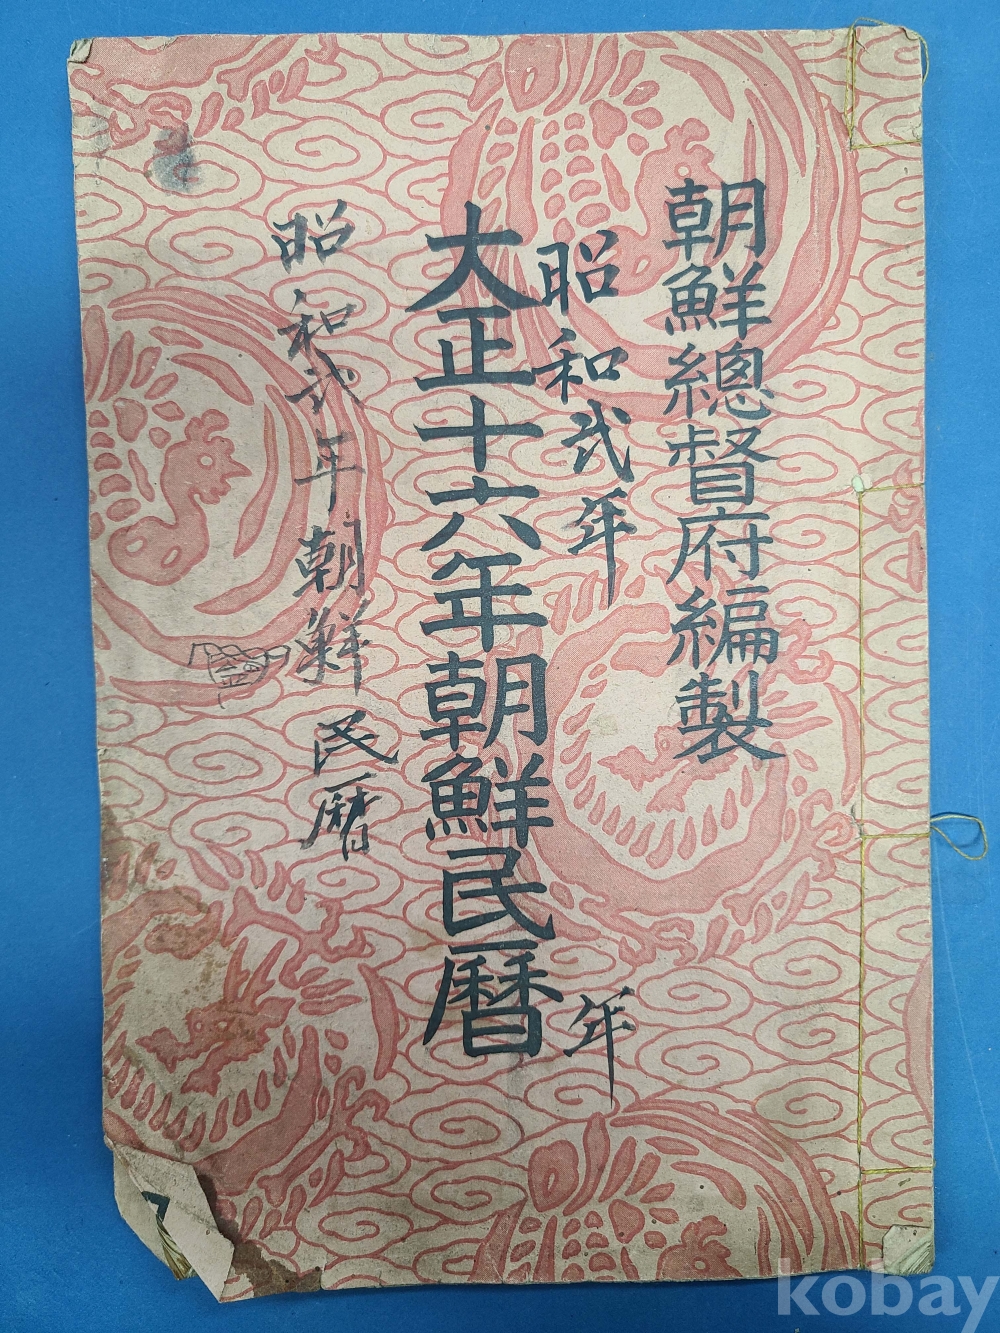 朝鮮總督府編製
昭和弍年
年
大正十六年朝鮮民曆
昭和弍年朝鮮民曆
kobay